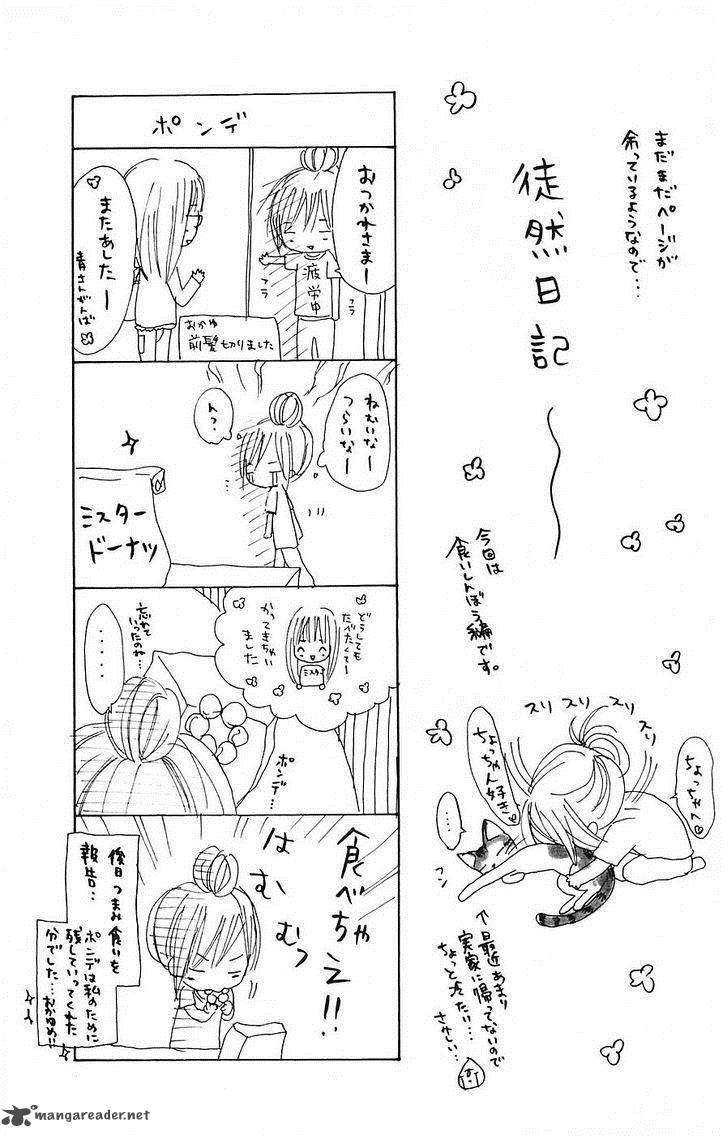 まだまだページが
余っているようなので…
徒然日記
今回は
食いしんぼう編です。
スリ スリ スリ スリ
ちょっちゃん好き
ちょっちゃん
…
フン
↑最近あまり
実家に帰ってないので
ちょっと冷たい…
さみしい…
ポンデ
おつかれさまー
フラ
フラ
またあしたー
青さんがんば
おかゆ
前髪切りました
ねむいなー
つらいなー
ん?
…
ミスター
ドーナツ
どうしても
たべたくてー
かってきちゃい
ました
ミスド
忘れて
いったのね…
・・・・
ポンデ…
食べちゃえ!!
はむ
むむっ
後日つまみ食いを
報告…
ポンデは私のために
残していってくれた
分でした…おかゆめ!!
mangareader.net